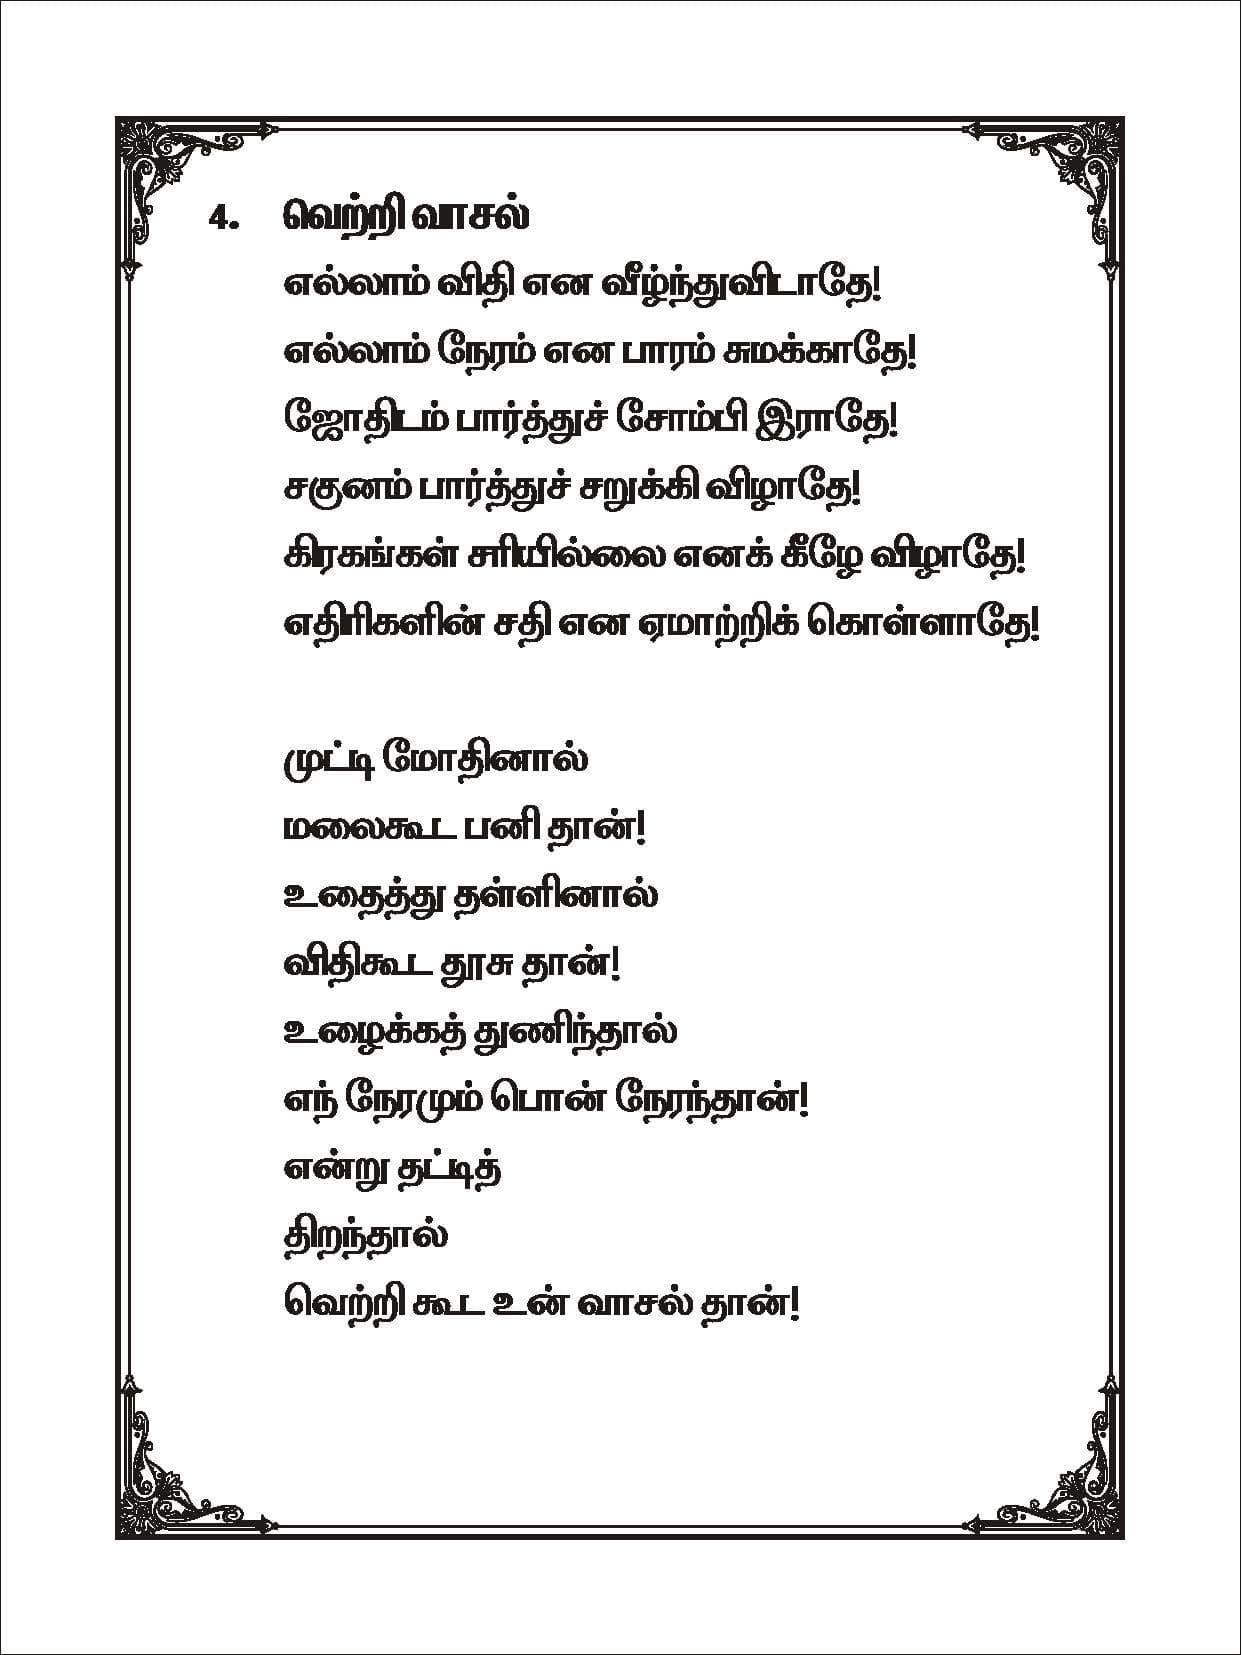 4. வெற்றி வாசல்
எல்லாம் விதி என வீழ்ந்துவிடாதே!
எல்லாம் நேரம் என பாரம் சுமக்காதே!
ஜோதிடம் பார்த்துச் சோம்பி இராதே!
சகுனம் பார்த்துச் சறுக்கி விழாதே!
கிரகங்கள் சரியில்லை எனக் கீழே விழாதே!
எதிரிகளின் சதி என ஏமாற்றிக் கொள்ளாதே!
முட்டி மோதினால்
மலைகூட பனி தான்!
உதைத்து தள்ளினால்
விதிகூட தூசு தான்!
உழைக்கத் துணிந்தால்
எந் நேரமும் பொன் நேரந்தான்!
என்று தட்டித்
திறந்தால்
வெற்றி கூட உன் வாசல் தான்!